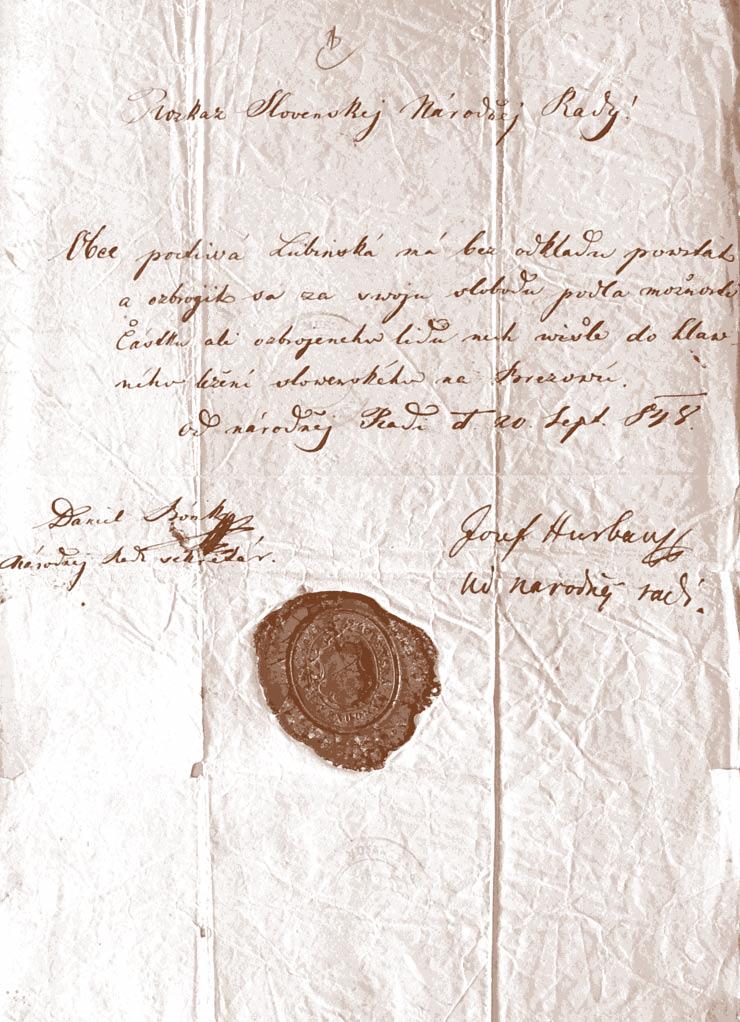 Rozkaz Slovenskej Národnej Rady!
Obec poctivá Lubinská má bez odkladu powstať
a ozbrogiť sa za swoju slobodu podla možnosti
Částku ali ozbrojeneho lidu nech wišle do hlaw-
ního ležení slowenského na Brezowú.
od národněj Radi d 20. Sept. 848.
Daniel
Národněj Radi sekretár.
Josef Hurban
ud narodněj radi.